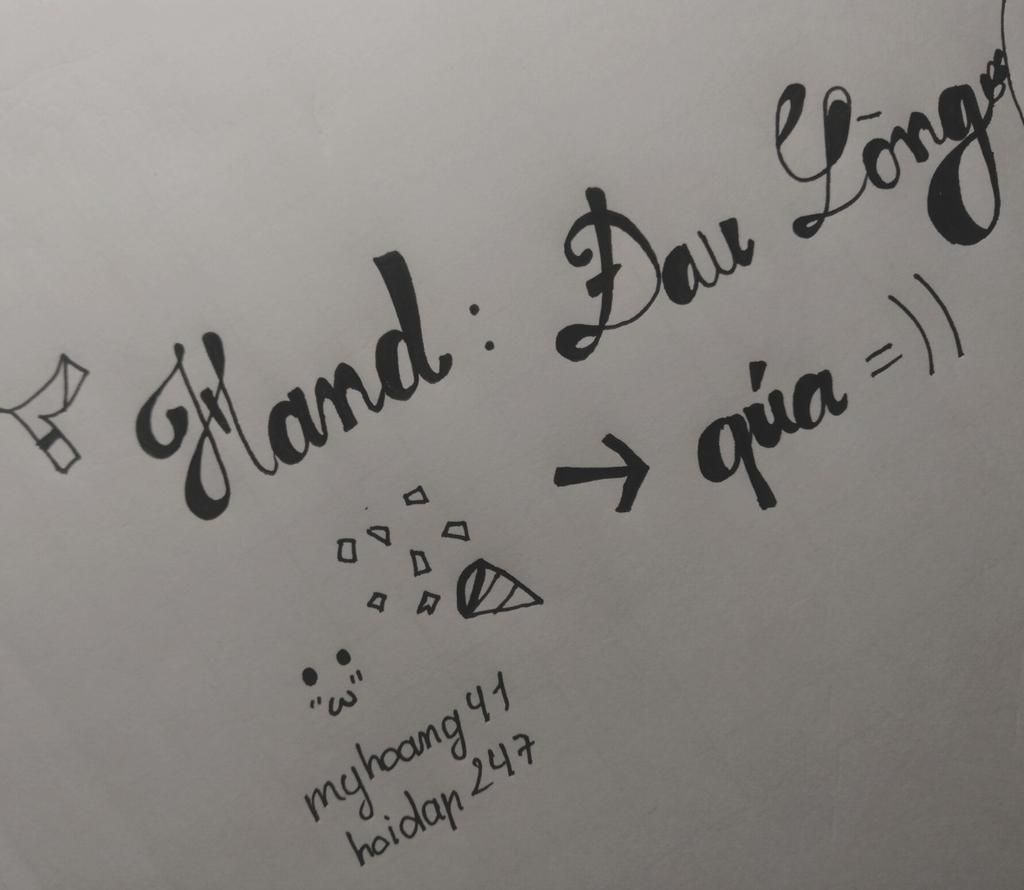 Hand : Đau Lōng
→ qúa =))
"ω"
myhoang41
hoidap247